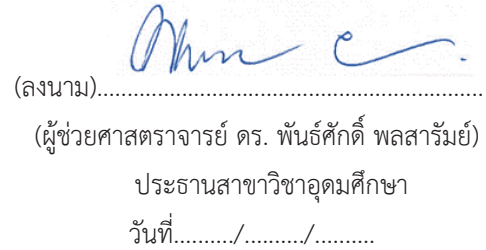 (ลงนาม)............................................................
(ผู้ช่วยศาสตราจารย์ ดร. พันธ์ศักดิ์ พลสารัมย์)
ประธานสาขาวิชาอุดมศึกษา
วันที่........../........../..........